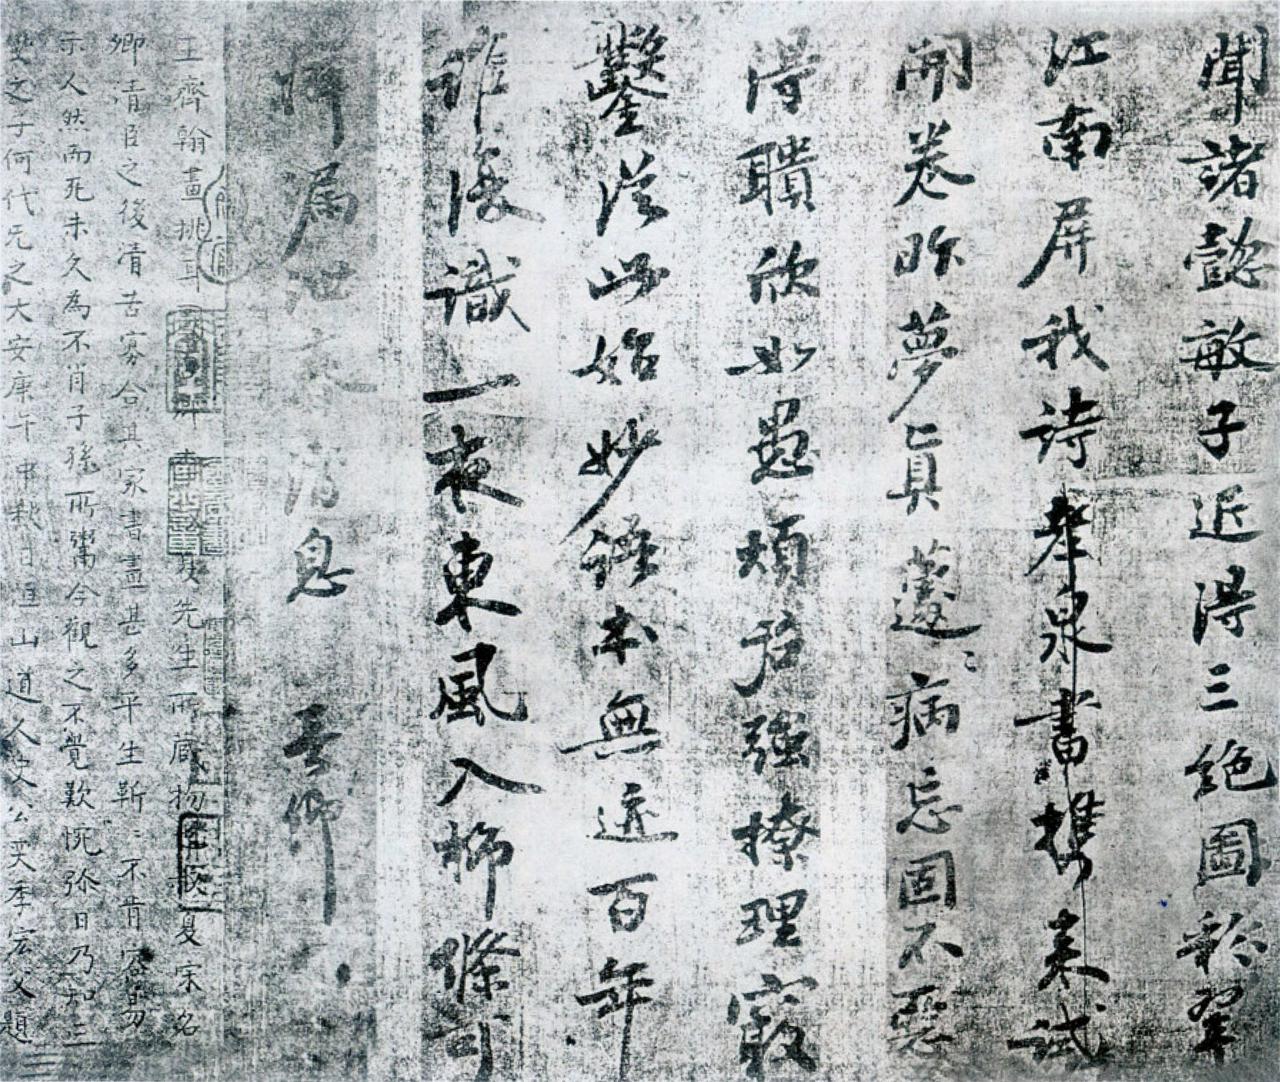 聞諸懿敏子近得三絕圖彩
江南屏我詩拳泉書攜來試
開卷昨夢真蘧〻病忘固不惡
得聵欣如愚煩君強撩理竅
鑿從此始妙語本無迹百年
誰復識一夜東風入柳條可
將漏泄春消息 晉卿
王齊翰畫挑耳 夏先生所藏物 夏宋名
卿清臣之後清苦寡合其家書畫甚多平生靳〻不肯容易
示人然而死未久為不肖子孫所鬻今觀之不覺歎惋弥日乃知三
之子何代无之大安庚午中秋日亘山道人史公奕季宏父題